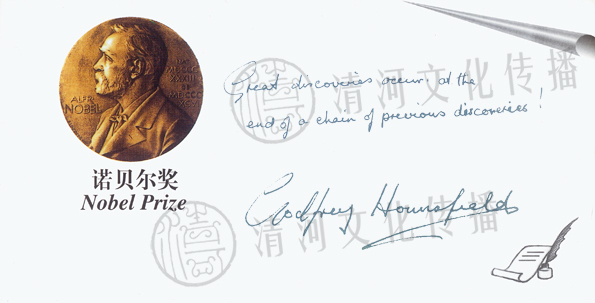 ALFR.
NOBEL
诺贝尔奖
Nobel Prize
Great discoveries occur at the
end of a chain of previous discoveries!
Godfrey Hounsfield
清河文化传播
清河文化传播